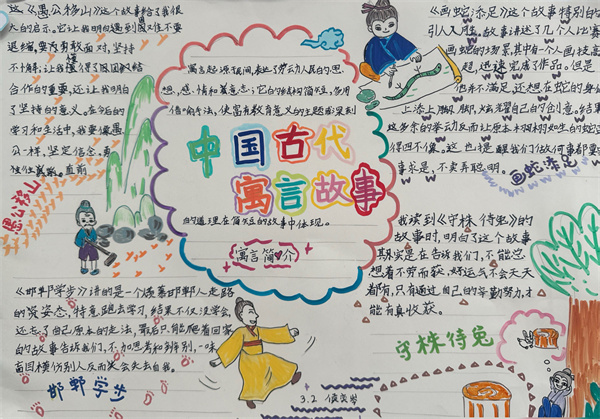 这《愚公移山》这个故事给了我很
大的启示。它让我明白遇到困难不要
退缩,要为勇敢面对,坚持
不懈,让我懂得了团团结
合作的重要,还让我明白
了坚持的意义。在今后的
学习和生活中,我要像愚
公一样,坚定信念,勇
往直前
愚公移山
寓言起源很
民间,表达了劳动人民的思
想、感情和美意志,它的结构简单,多用
借
的方法,使富有教育意义的主题或深刻
中国古代
寓言故事
的道理在简短的故事中体现。
寓言简介
《画蛇添足》这个故事特别的
引人入胜。故事讲述了几个人比赛
画蛇的场景,其中有一个人技高
超,迅速完成了作品。但是
他并不满足,还想在蛇的身
上添上脚,脚,炫耀自己的创意。结果
这多余的举动反而让原本栩栩如生的蛇变
得四不像。这也提醒我们做何事都要
事求是,不卖弄聪明。
画蛇添足
我读到《守株待兔》的
故事时,明白了这个故事
期实是在告诉我们,不能总
想着不劳而获,好运气不会天天
都有,只有通过自己的辛勤努力,才
能有真收获。
守株待兔
《邯郸学步》讲的是一个羡慕邯郸人走路
的姿态,特意跑去学习,结果不仅没学会
还忘了自己原本的走法,最后只能爬着回家
的故事告诉我们,不加思考和辨别,一味
盲目模仿别人反而会失去自我。
邯郸学步
3.2